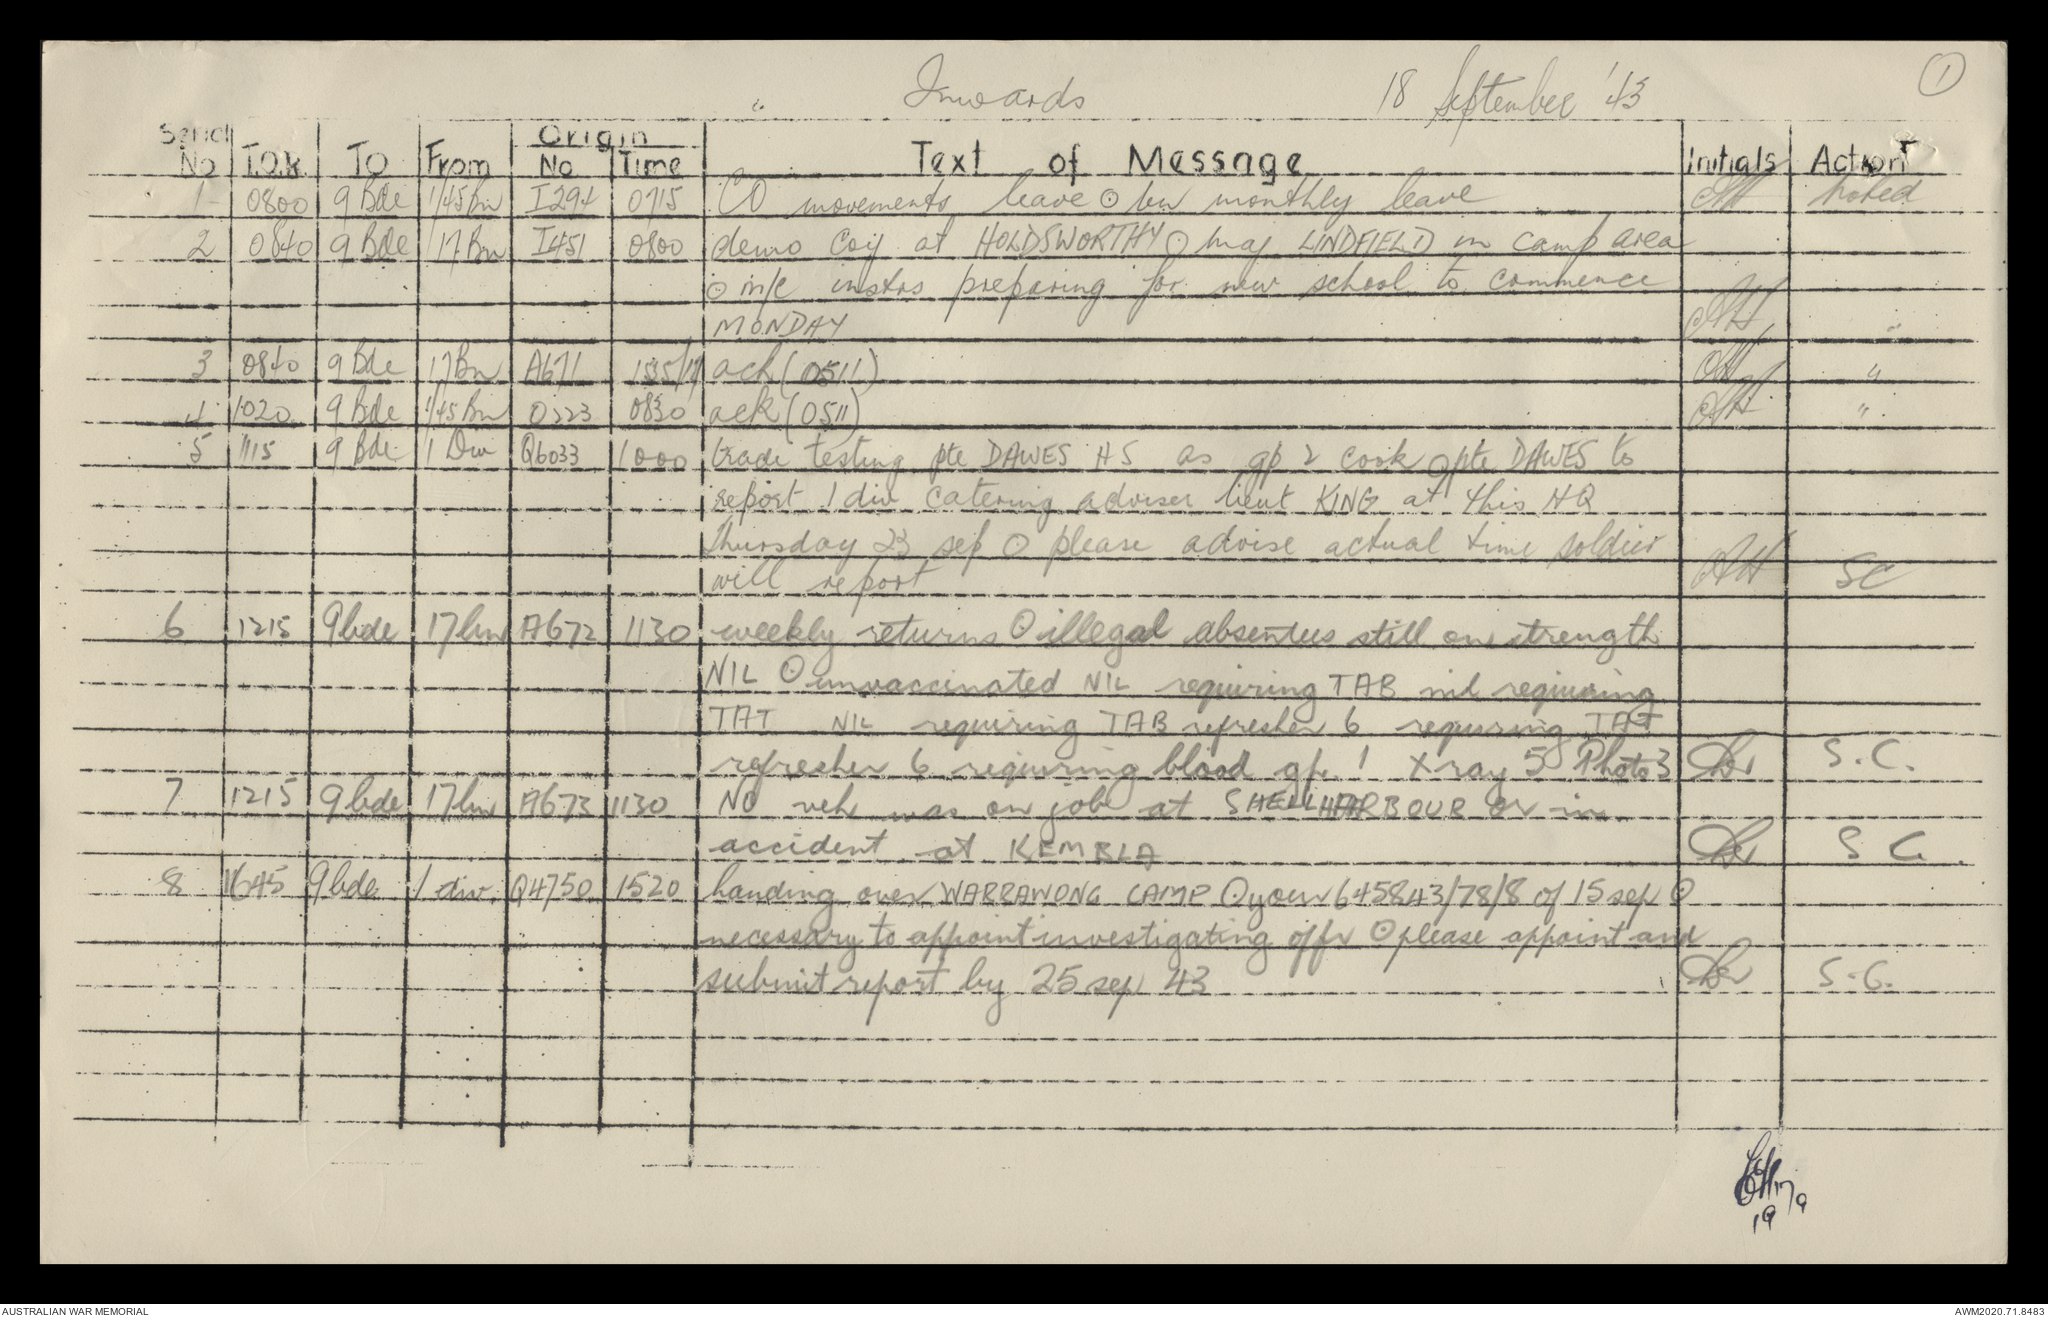 Inwards 18 September '43 1
Origin
Serial No T.O.R To From No Time Text of Message Initials Action
1 0800 9 Bde 1/45 Bn I294 0715 CO movements leave ⊙ bn monthly leave noted
2 0840 9 Bde 17 Bn I451 0800 demo coy at HOLDSWORTHY ⊙ maj LINDFIELD in camp area
⊙ instrs preparing for new school to commence
MONDAY "
3 0840 9 Bde 17 Bn A671 ack (0511) "
4 1020 9 Bde 1/45 Bn O223 0830 ack (0511) "
5 1115 9 Bde 1 Div Q6033 1000 trade testing pte DAWES HS as gp 2 cook ⊙ pte DAWES to
report 1 div catering adviser lieut KING at this HQ
Thursday 23 sep ⊙ please advise actual time soldier
will report SC
6 1215 9 bde 17 bn A672 1130 weekly returns ⊙ illegal absentees still on strength
NIL ⊙ unvaccinated NIL requiring TAB nil requiring
TAT NIL requiring TAB refresher 6 requiring TAT
refresher 6 requiring blood gp. 1 X ray 5 Photo 3 S.C.
7 1215 9 bde 17 bn A673 1130 No veh was on job at SHELLHARBOUR or in
accident at KEMBLA S C.
8 1645 9 bde 1 div. Q4750 1520 handing over WARRAWONG CAMP ⊙ your 645843/78/8 of 15 sep ⊙
necessary to appoint investigating offr ⊙ please appoint and
submit report by 25 sep 43 S.C.
19/9
AUSTRALIAN WAR MEMORIAL AWM2020.71.8483